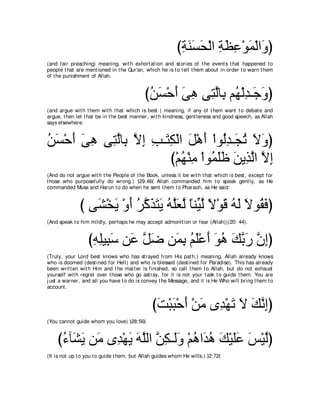 (وَالْمَوْعِظَةِ الْحَسَنَةِ)
(and fair preaching) meaning, with exhortation and stories of the events that happened to people that are mentioned in the Qur'an, which he is to tell them about in order to warn them of the punishment of Allah.
(وَجَـدِلْهُم بِالَّتِى هِىَ أَحْسَنُ)
(and argue with them with that which is best.) meaning, if any of them want to debate and argue, then let that be in the best manner, with kindness, gentleness and good speech, as Allah says elsewhere:
(وَلاَ تُجَـدِلُواْ أَهْلَ الْكِتَـبِ إِلاَّ بِالَّتِى هِىَ أَحْسَنُ إِلاَّ الَّذِينَ ظَلَمُواْ مِنْهُمْ)
(And do not argue with the People of the Book, unless it be with that which is best, except for those who purposefully do wrong.) )29:46( Allah commanded him to speak gently, as He commanded Musa and Harun to do when he sent them to Pharaoh, as He said:
(فَقُولاَ لَهُ قَوْلاً لَّيِّناً لَّعَلَّهُ يَتَذَكَّرُ أَوْ يَخْشَى )
(And speak to him mildly, perhaps he may accept admonition or fear (Allah))(20: 44).
(إِنَّ رَبَّكَ هُوَ أَعْلَمُ بِمَن ضَلَّ عَن سَبِيلِهِ)
(Truly, your Lord best knows who has strayed from His path,) meaning, Allah already knows who is doomed (destined for Hell) and who is blessed (destined for Paradise). This has already been written with Him and the matter is finished, so call them to Allah, but do not exhaust yourself with regret over those who go astray, for it is not your task to guide them. You are just a warner, and all you have to do is convey the Message, and it is He Who will bring them to account.
(إِنَّكَ لاَ تَهْدِى مَنْ أَحْبَبْتَ)
(You cannot guide whom you love) )28:56(
(لَّيْسَ عَلَيْكَ هُدَاهُمْ وَلَـكِنَّ اللَّهَ يَهْدِى مَن يَشَآءُ)
(It is not up to you to guide them, but Allah guides whom He wills.) )2:72(